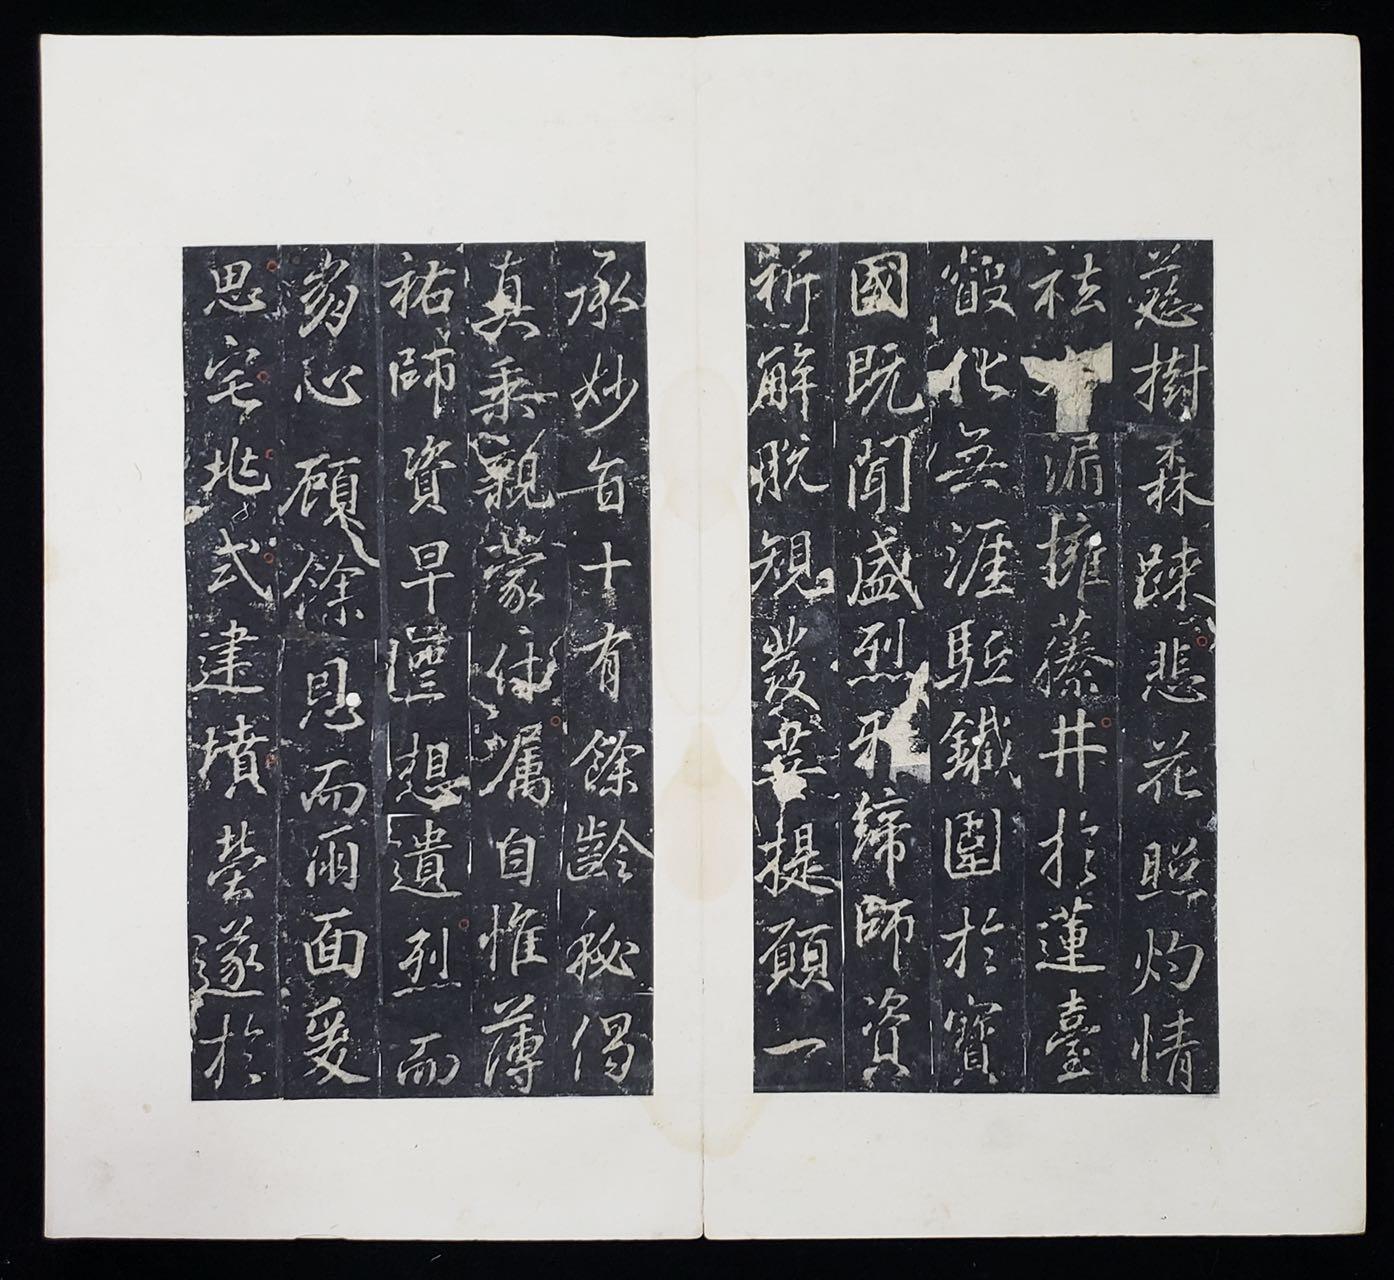 慈樹森踈悲花照灼情
祛漏擁藤井於蓮臺
化無涯駈鐵圍於寶
國既聞盛烈邪締師資
祈解脫規發菩提願一
承妙旨十有餘齡秘偈
真乘親蒙付囑自惟薄
祐師資早匱想遺烈而
崩心顧餘恩而雨面爰
思宅兆式建墳塋遂於